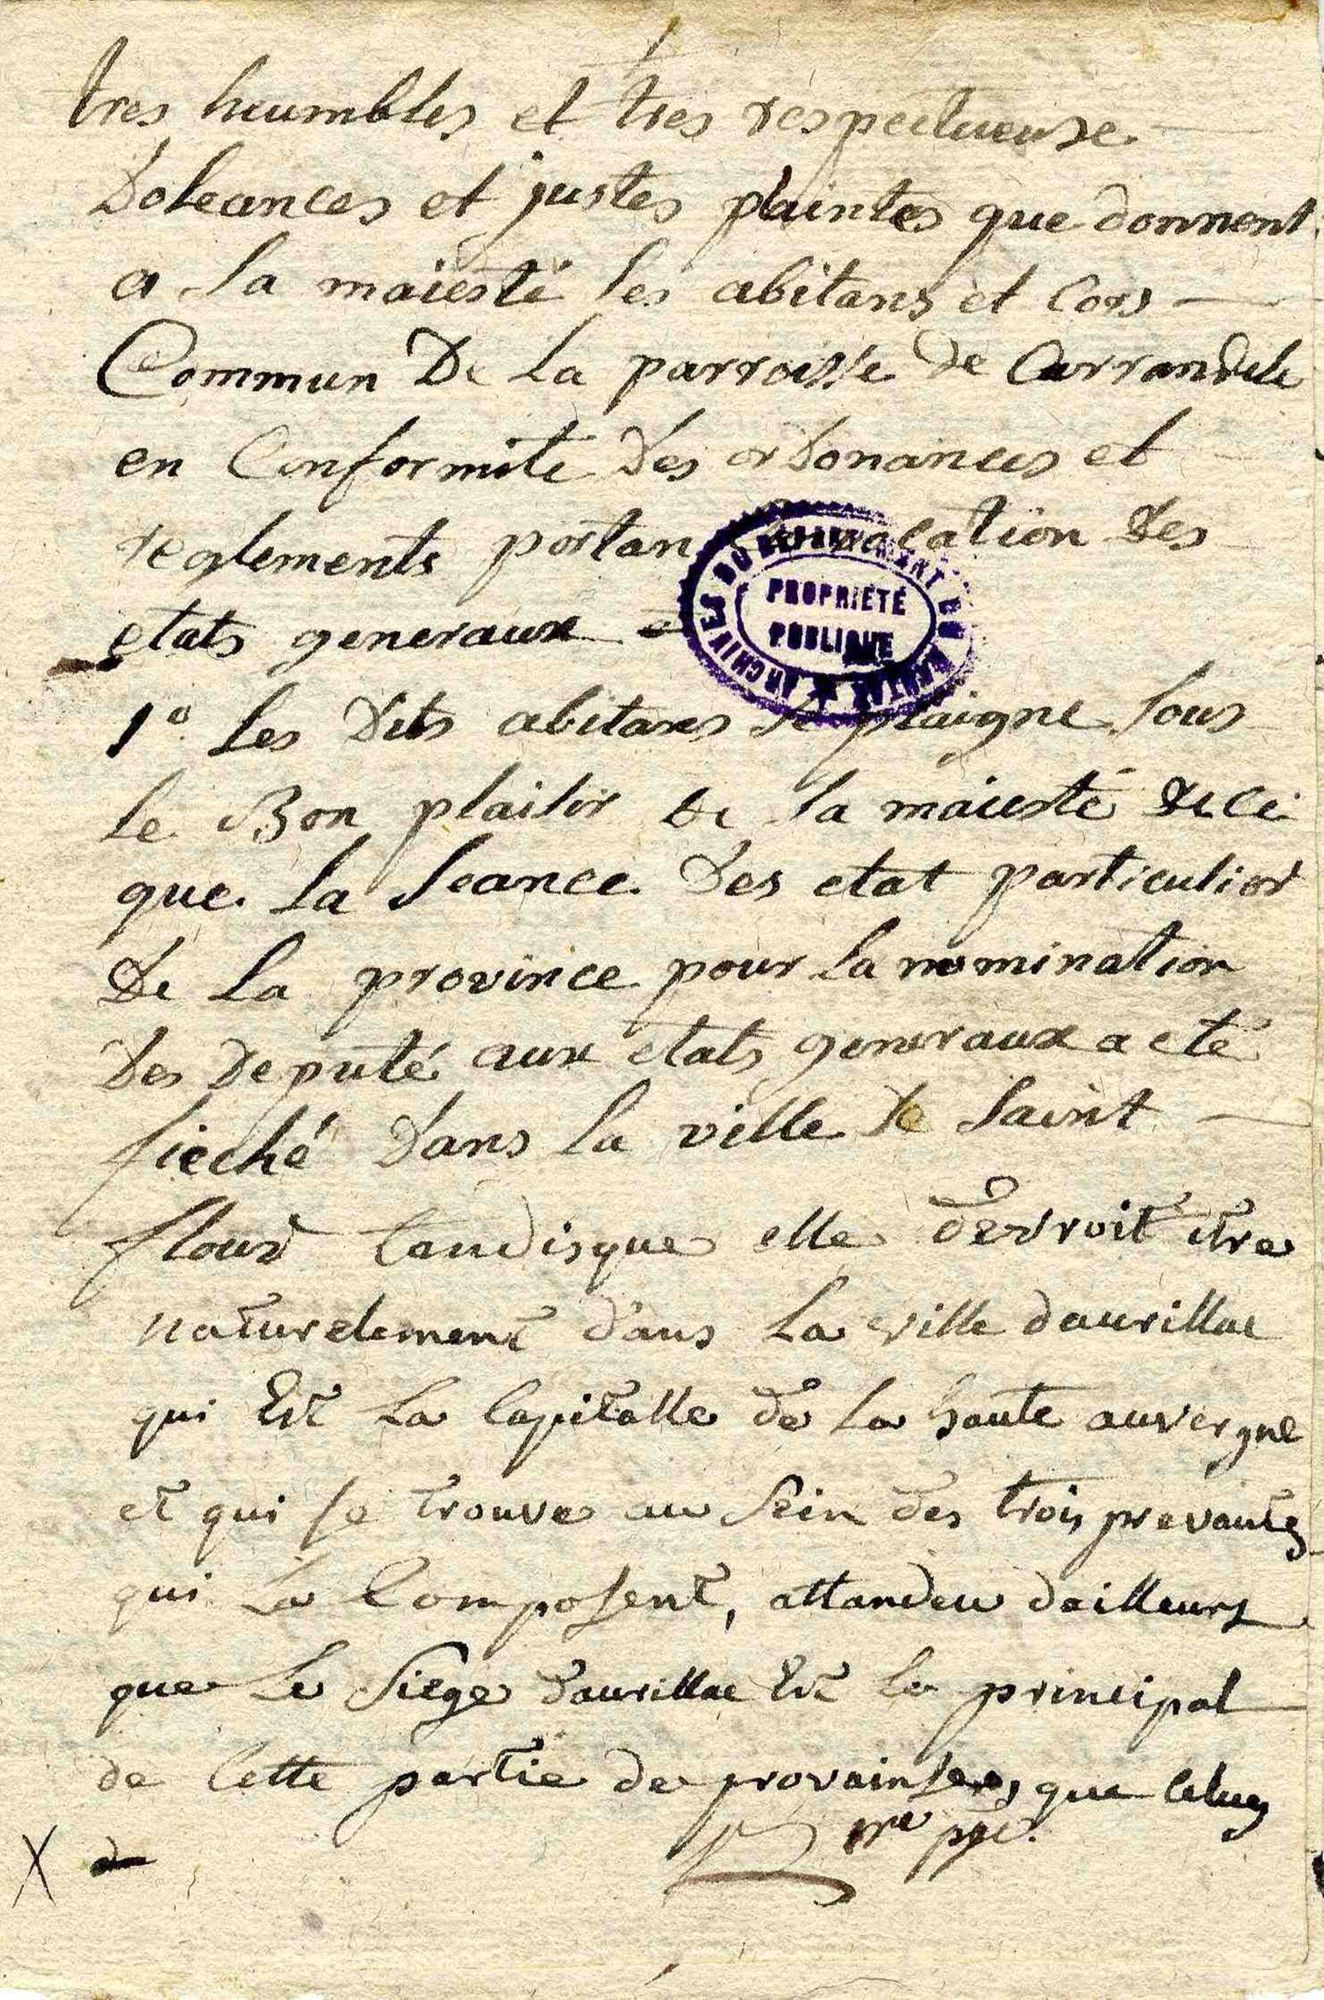 tres heumbles et tres respectueuse
Doleances et justes plaintes que donnent
a sa maiesté les abitans et Cors
Commun De La parroisse de Carrandele
en Conformité des ordonances et
reglements portan des
etats generaux
1° Les Dits abitans se plaigne sous
le Bon plaisir de sa maiesté de ce
que La seance des etat particulior
De La province pour La nomination
Des Deputé aux etats generaux a eté
fieché Dans la ville de saint
flour tandisque elle devroit etre
naturelement dans La ville daurillac
qui Est La Capitalle de La haute auvergne
et qui se trouve au sein des trois prevautes
qui La Composent, attandeu dailleurs
que Le siege daurillac Est Le principal
de Cette partie de provainse, que Celuy
X
1re pge.
ARCHIVES DU DÉPARTEMENT DU CANTAL
PROPRIÉTÉ
PUBLIQUE